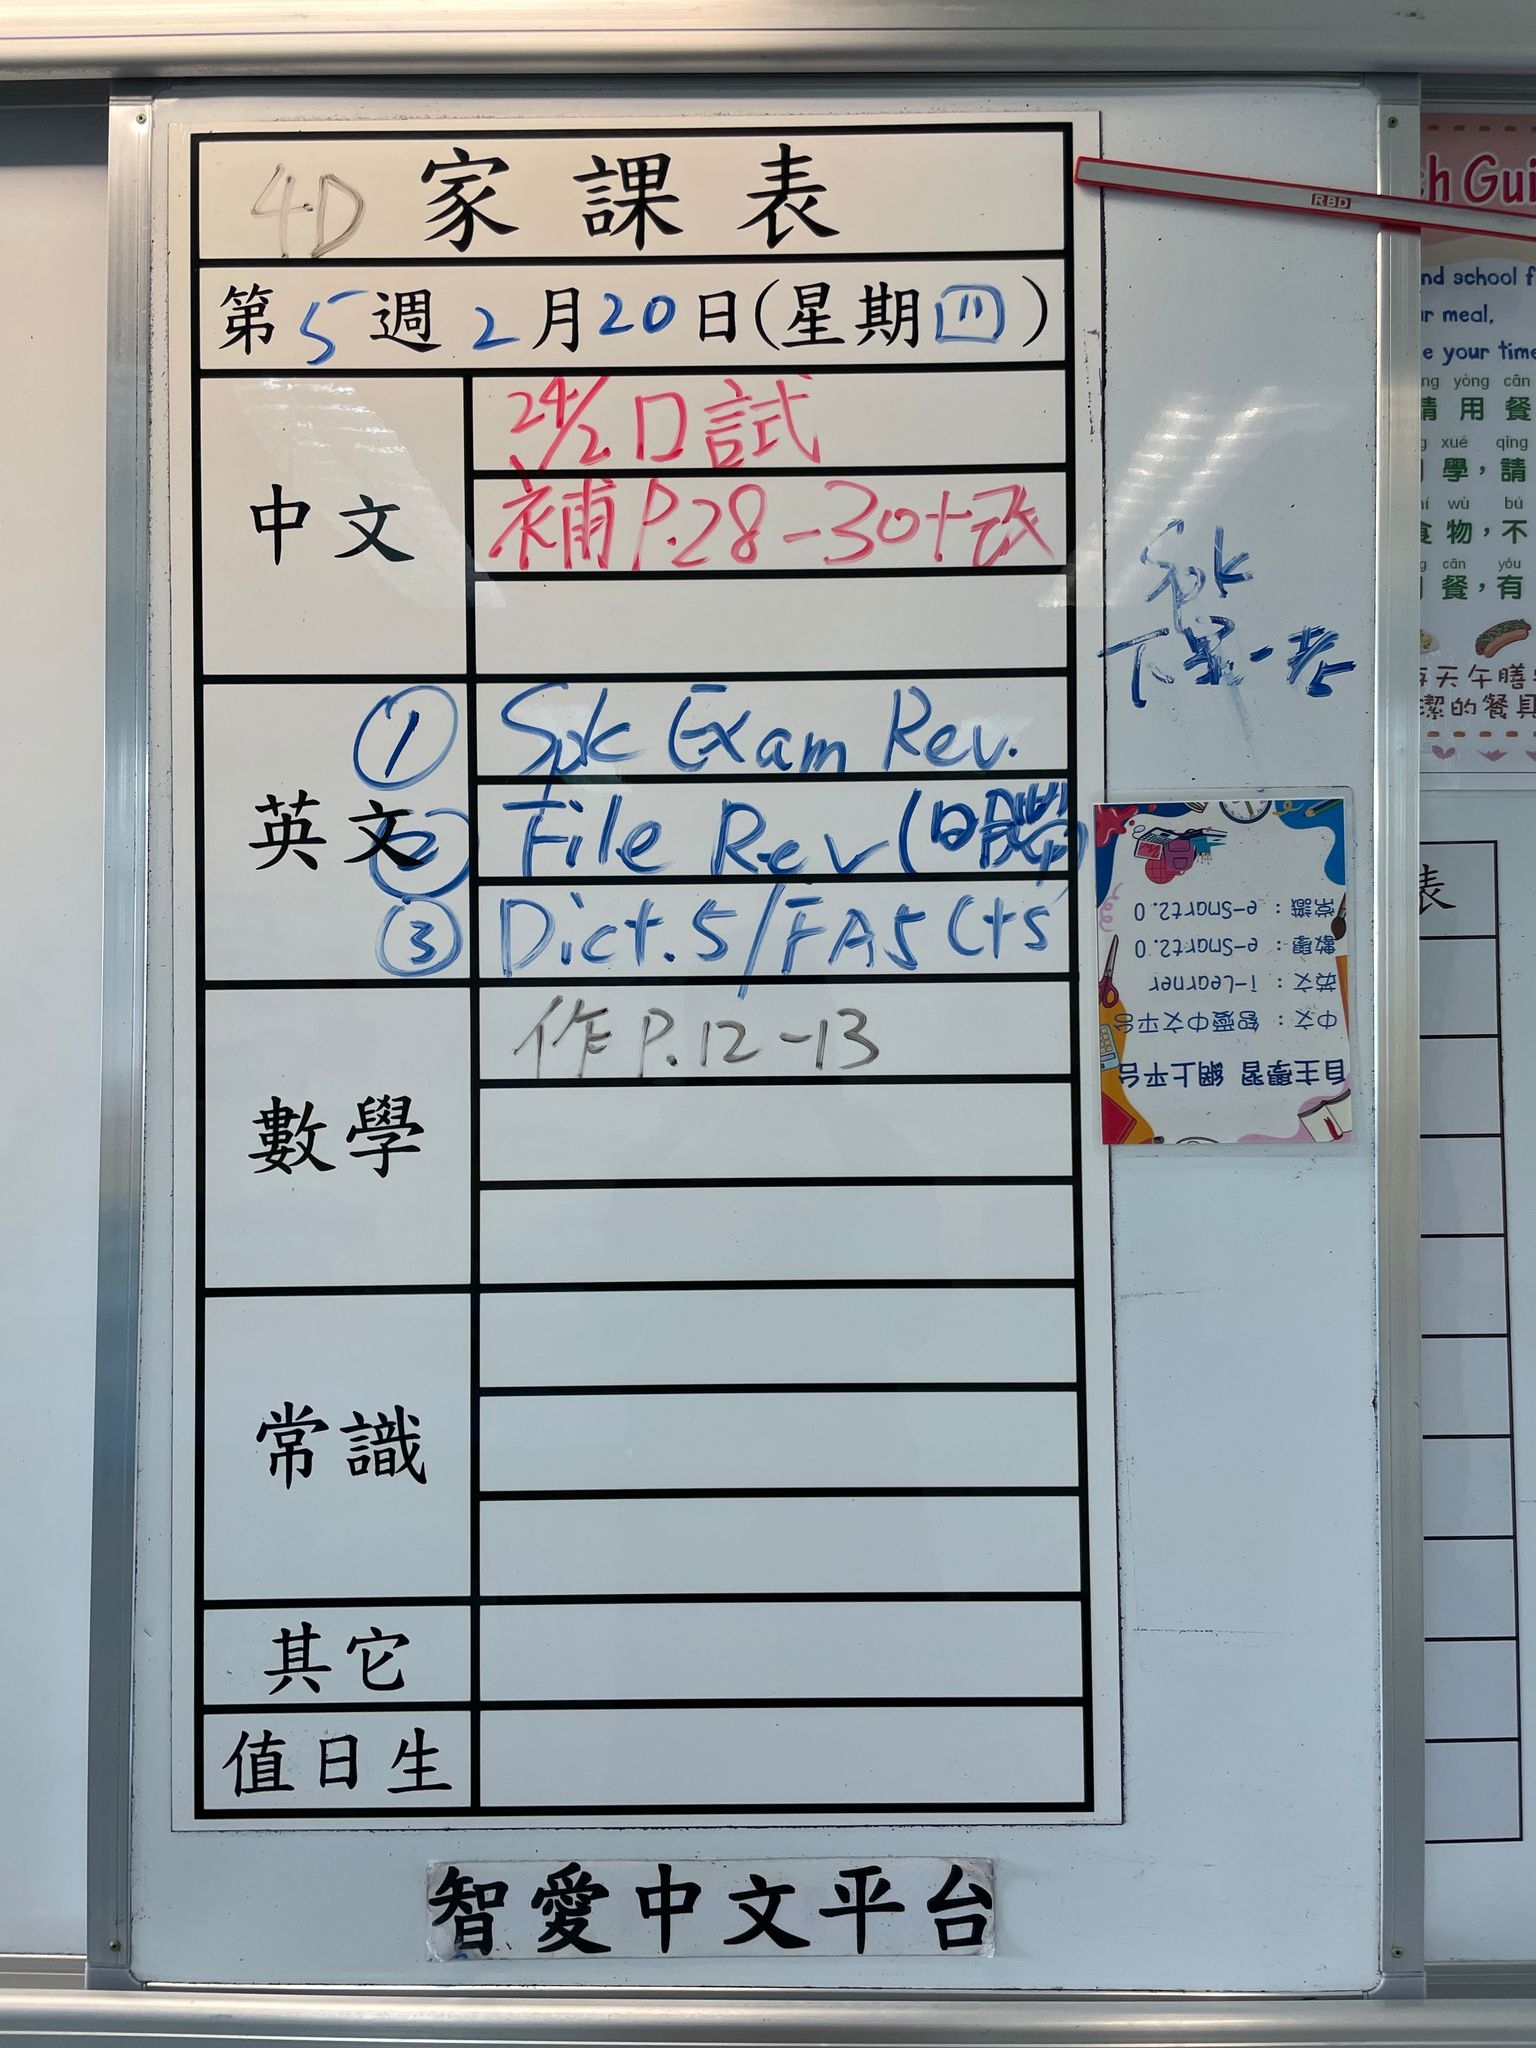 4D 家課表
第5週 2月20日(星期四)
中文
24/2 口試
補P.28-30+改
英文
① Spk Exam Rev.
② File Rev (明帶)
③ Dict.5/FA5 Cts
數學
作P.12-13
常識
其它
值日生
智愛中文平台
Spk
下星一考
自主學習 網上平台
中文：智愛中文平台
英文：i-Learner
數學：e-Smart2.0
常識：e-Smart2.0
RBD
ch Gui
nd school f
ur meal,
e your time
yòng cān
請用餐
xué qǐng
學，請
wù bú
食物，不
cān yǒu
餐，有
每天午膳
潔的餐具
表